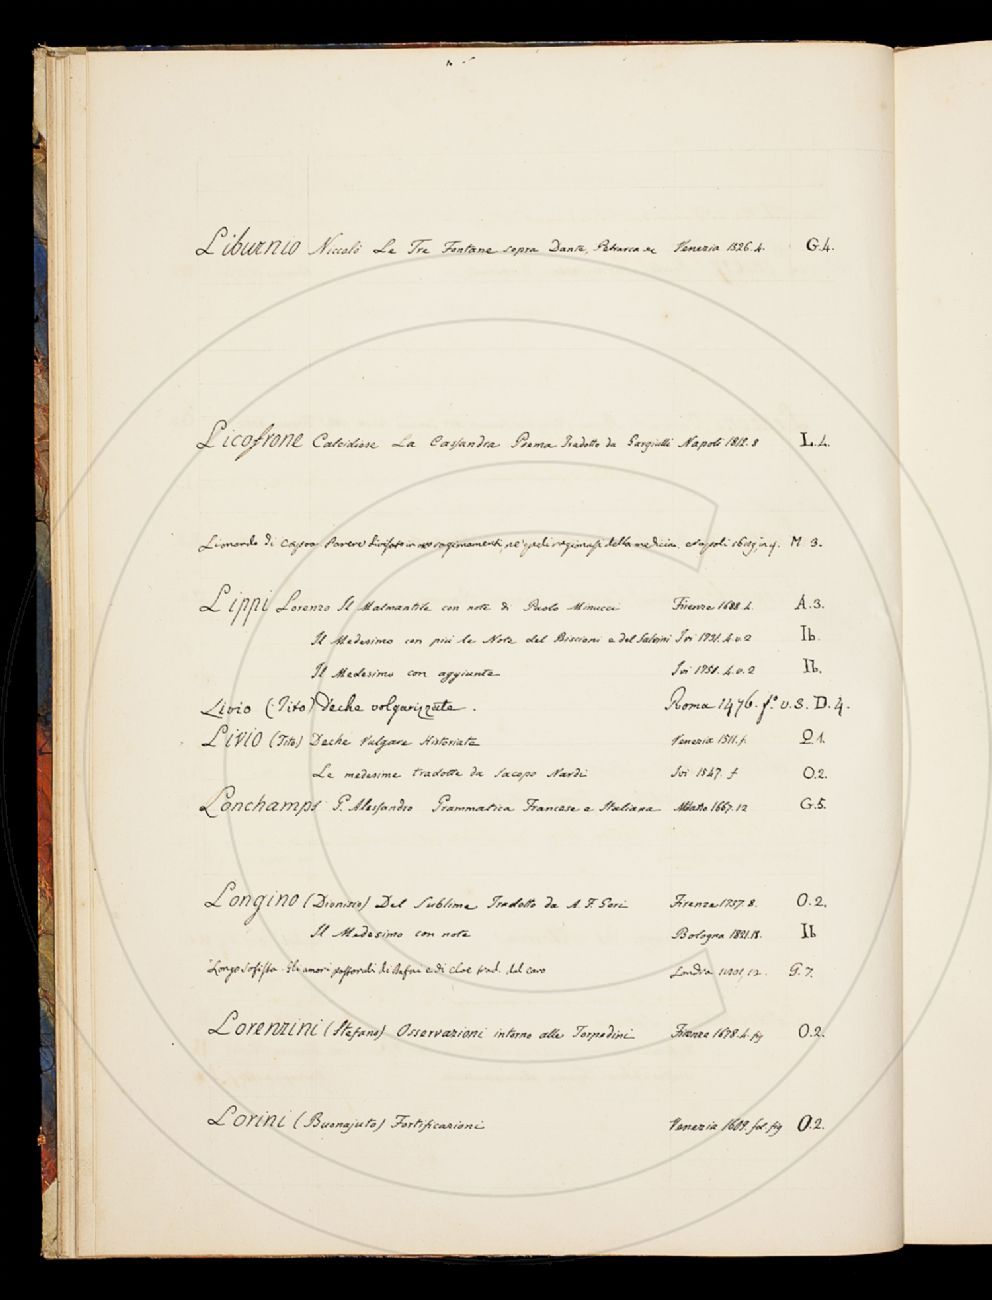 Liburnio Niccolò Le Tre Fontane sopra Dante, Petrarca ec Venezia 1526. 4. G.4.
Licofrone Calcidese La Cassandra Poema tradotto da Gargiulli Napoli 1812. 8 L.4.
Lionardo di Capoa Parere divisato in ragionamenti, della medicina Napoli M. 3.
Lippi Lorenzo Il Malmantile con note di Paolo Minucci Firenze 1688. 4. A.3.
Il Medesimo con più le Note del Biscioni e del Salvini Ivi 1731. 4. v. 2 Ib.
Il Medesimo con aggiunte Ivi 1750. 4. v. 2 Ib.
Livio (Tito) Deche volgarizzate. Roma 1476. fo. v. 3. D. 4.
Livio (Tito) Deche Vulgare Historiate Venezia 1511. f. Q 1.
Le medesime tradotte da Jacopo Nardi Ivi 1547. f O.2.
Lonchamps P. Alessandro Grammatica Francese e Italiana 1667. 12 G.5.
Longino (Dionisio) Del Sublime Tradotto da A. F. Gori Firenze 1737. 8. O.2.
Il Medesimo con note Bologna 1821. 8. Ib
Longo sofista Gli amori pastorali di Dafni e di Cloe trad. dal caro Londra 12. G. 7.
Lorenzini (Stefano) Osservazioni intorno alle Torpedini Firenze 1678. 4. fig O.2.
Lorini (Buonajuto) Fortificazioni Venezia 1609. fol. fig O.2.